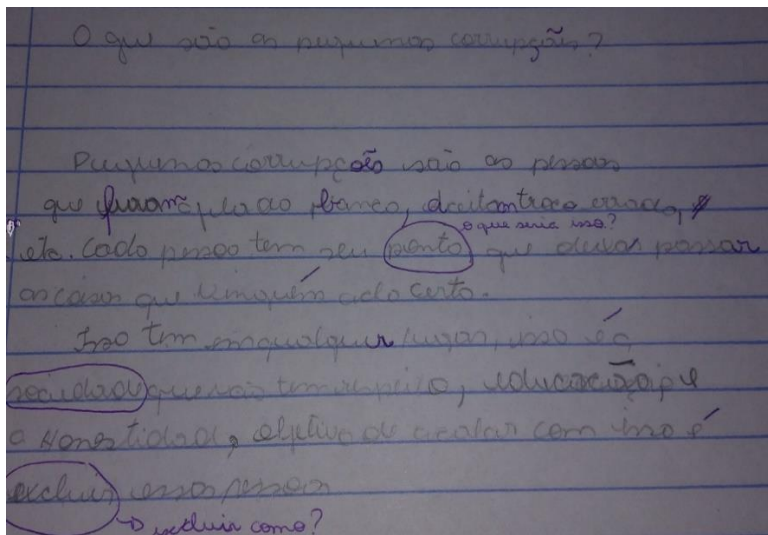 O que são as pequenas corrupções?
Pequenas corrupções são as pessoas
que furam fila do banco, aceitam troco errado,
o que seria isso?
etc. Cada pessoa tem seu ponto que deixar passar
as coisas que ninguém acha certo.
Isso tem em qualquer lugar, isso é a
que não tem respeito, educação e
a honestidade, objetivo de acabar com isso é
excluir essas pessoas
excluir como?